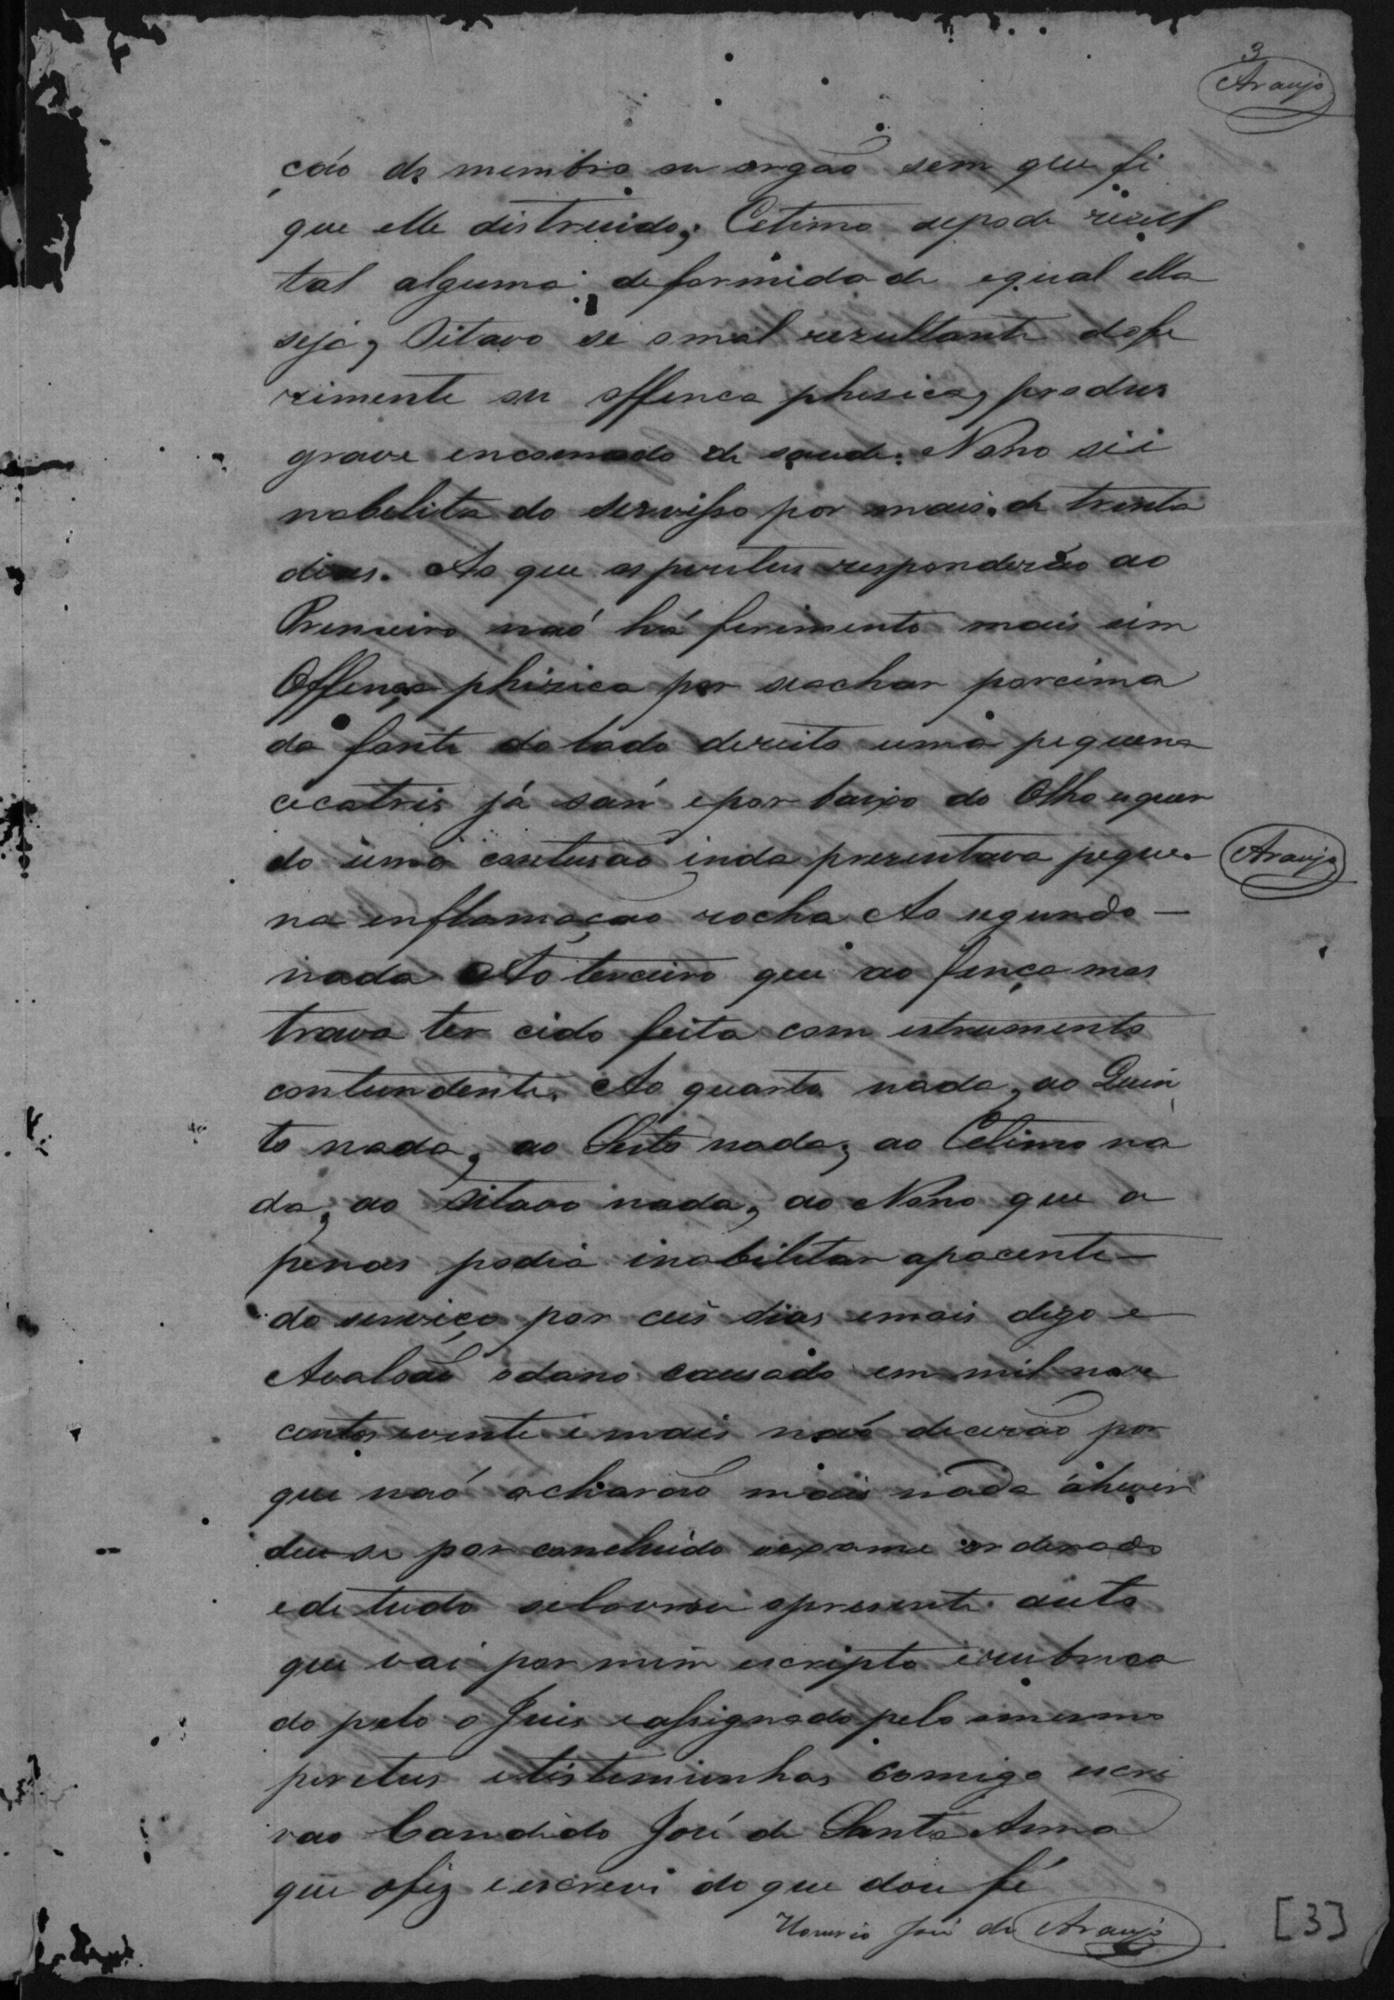 3
Araujo
ção do membro ou orgão sem que fi
que elle distruido; Cetimo sepode rezul
tal alguma deformidade equal ella
seja, Oitavo se omal rezultante dofe
rimente ou offenca phesica, produs
grave encomodo de saude. Nono sei
nabelita do servisso por mais de trenta
dias. Ao que os peritus responderão ao
Premeiro naó há ferimento mais sim
Offença phizica por seachar porcima
da fonte do lado dereito uma pequena
cecatris já sañ epor baixo do Olho esquer
do uma contusão inda prezentava peque
na enflamação rocha Ao segundo —
nada Ao terceiro que ao fença mos
trava ter cido feita com estrumento
contundente. Ao quarto nada, ao Quin
to nada, ao Sesto nada, ao Cetimo na
da, ao Oitavo nada, ao Nono que a
penas podia inabilitar apacente —
do serviço por ceis dias emais digo e
Avalsão odano causado em mil nove
centos evinte e mais naó decerão por
que naó acharaõ mais nada áhever
deu-se por concluido oexame ordenado
ede tudo selavrou opresente auto
que vai por mim escripto erubrica
do pelo o Juis eassignado pelo mesmo
peretus etistemunhas comigo escri
vao Candido José de Santa Anna
que ofiz eescrevi do que dou fé
Araujo
Honorio José de Araujo
[3]